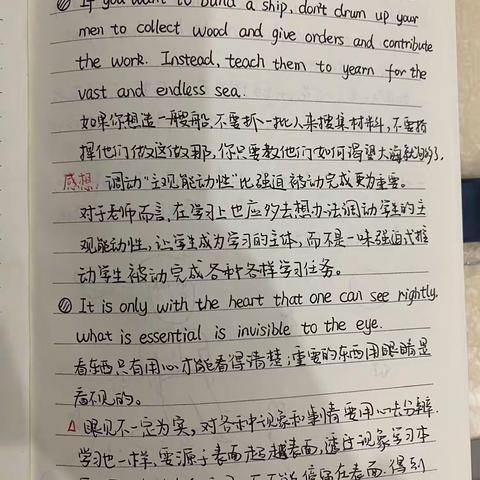 ⑩ If you want to build a ship, don't drum up your
men to collect wood and give orders and contribute
the work. Instead, teach them to yearn for the
vast and endless sea.
如果你想造一艘船,不要抓一批人来搜集材料,不要指
挥他们做这做那,你只要教他们如何渴望大海就够了.
感想: 调动"主观能动性"比强迫被动完成更为重要。
对于老师而言,在学习上也应多去想办法调动学生的主
观能动性,让学生成为学习的主体,而不是一味强迫式推
动学生被动完成各种各样学习任务。
It is only with the heart that one can see rightly.
what is essential is invisible to the eye.
看东西只有用心才能看得清楚,重要的东西用眼睛是
看不见的。
△ 眼见不一定为实,对各种现象和事情要用心去分辨.
学习也一样,要源于表面起越表面,透过现象学习本
在表面.得到